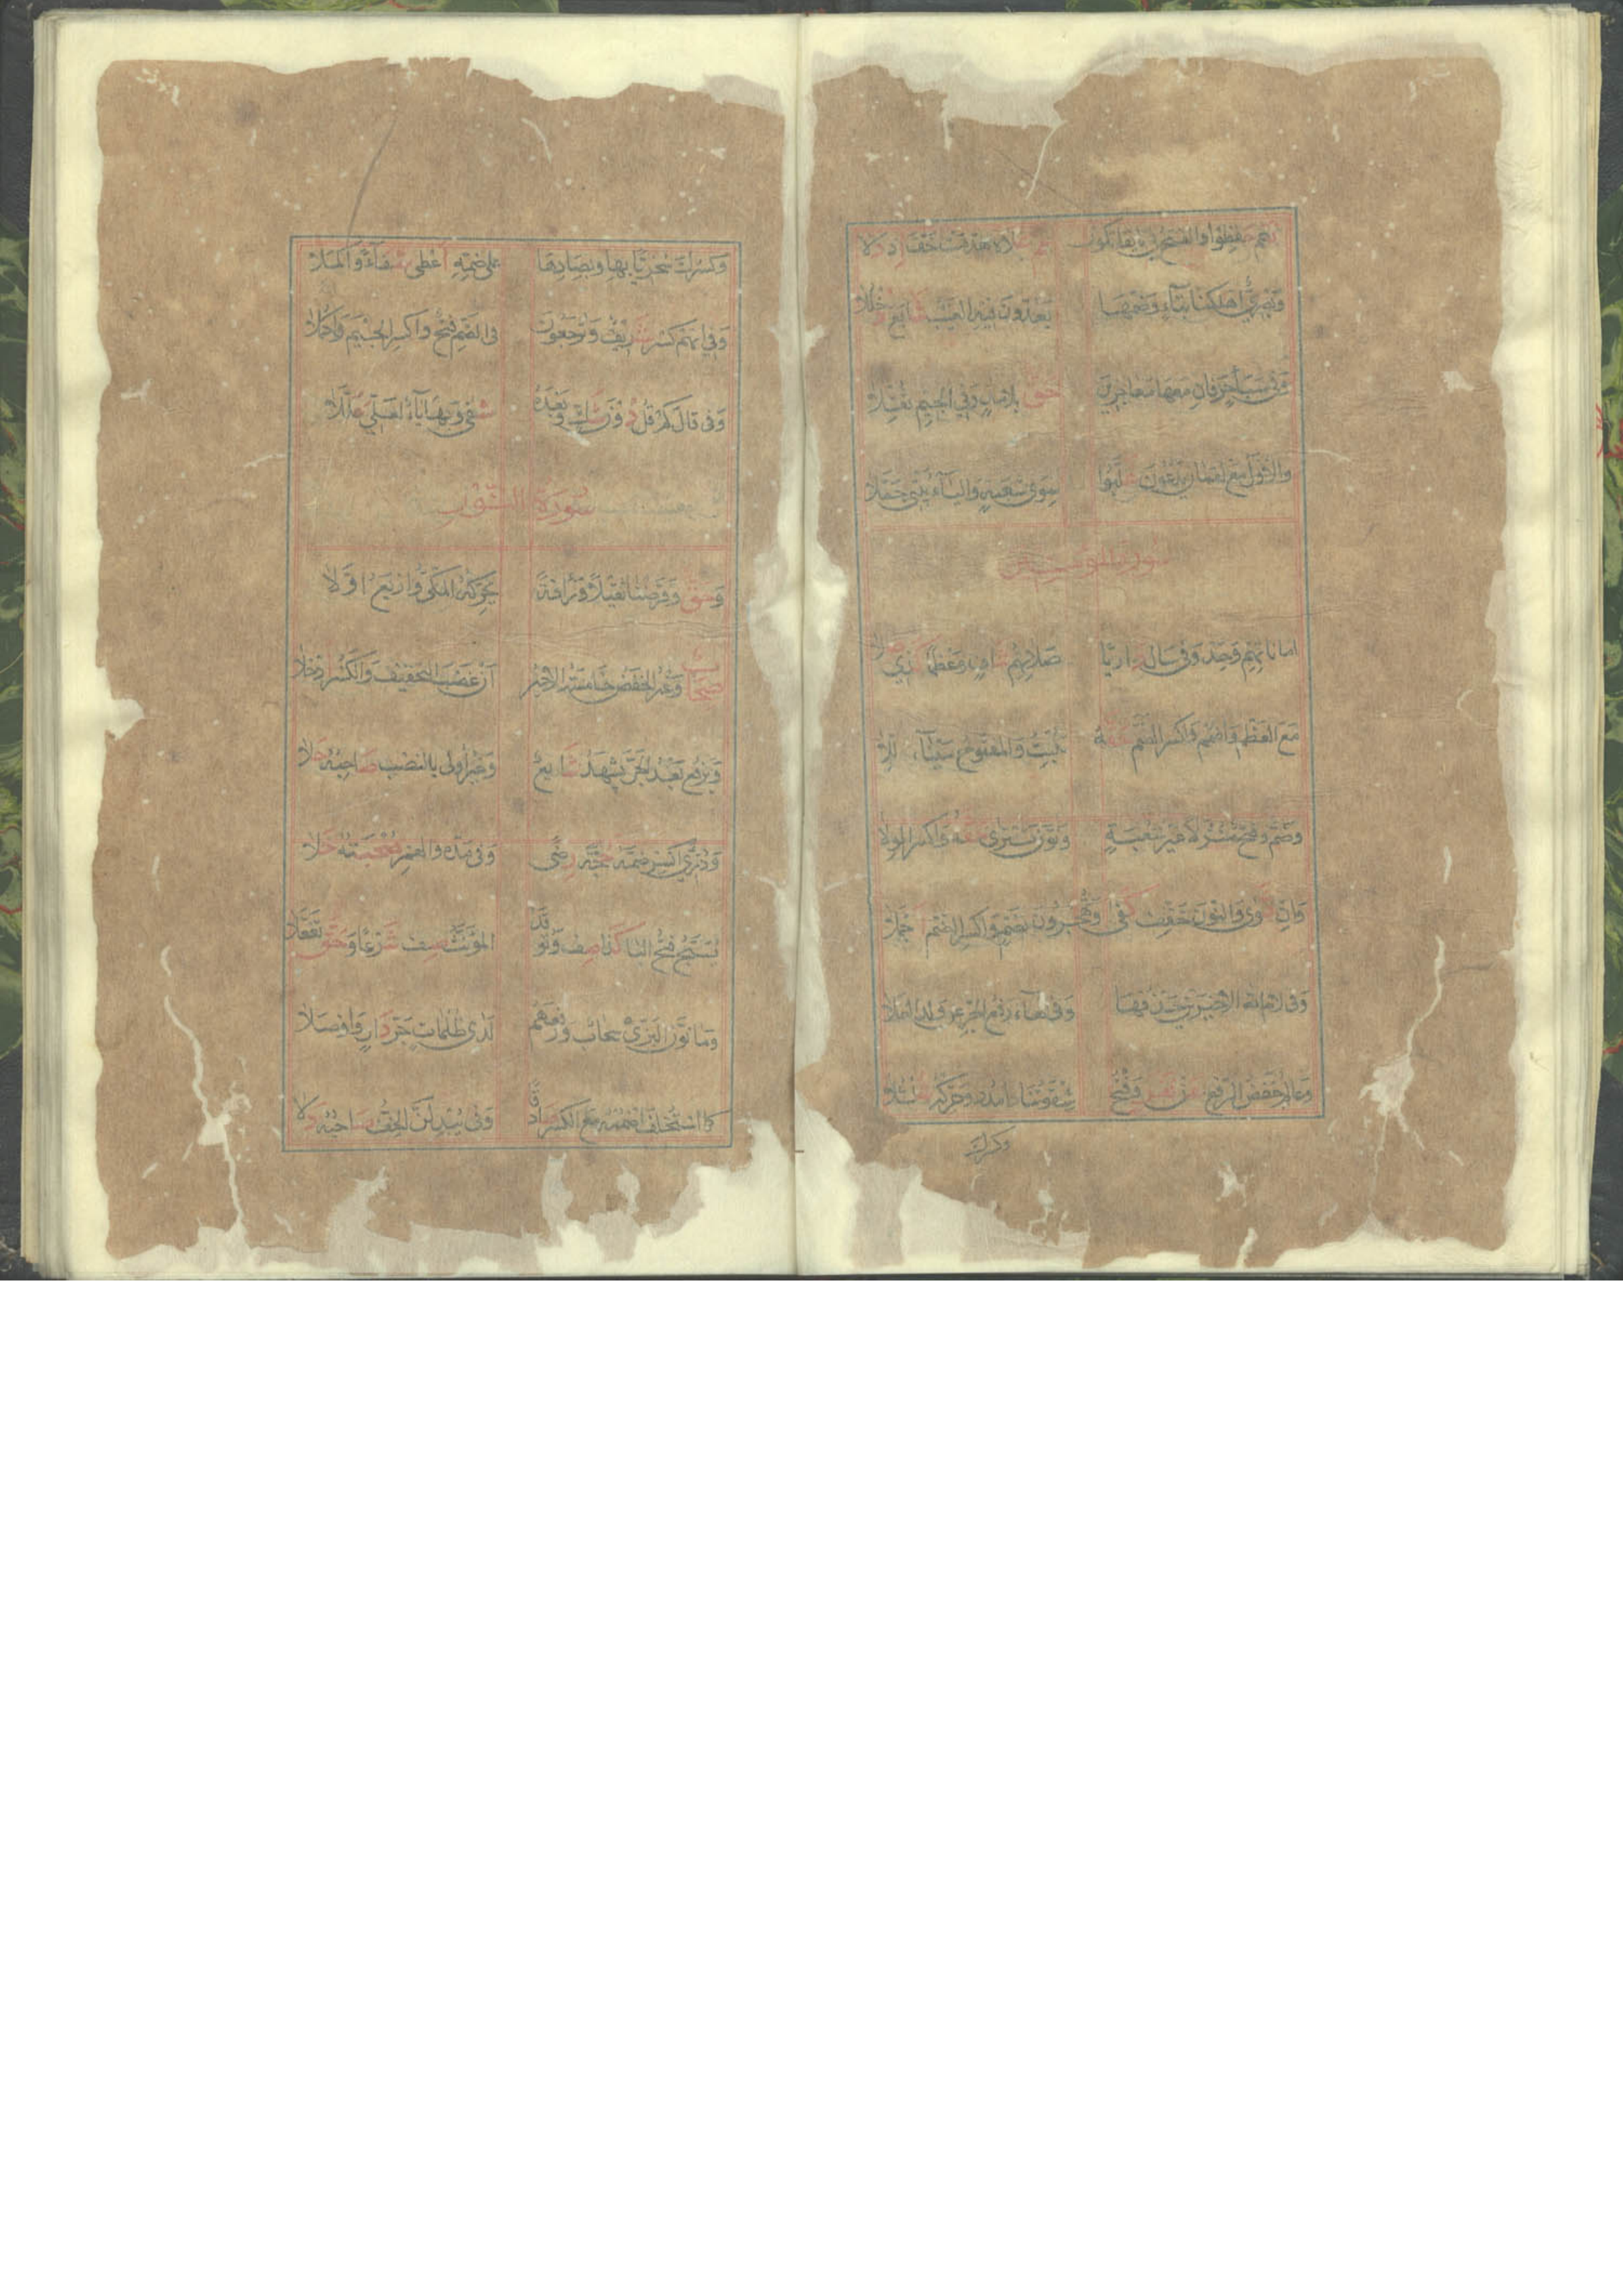 نعم حفظوا والفتح في تا يقاتلون عم علاه هدمت خف اذ دلا
وبصري اهلكنا بتاء وضمها يعدون فيه الغيب شايع دخللا
وفي سبأ حرفان معها معاجزين حق بلا مد وفي الجيم ثقلا
والاول مع لقمان يدعون غلبوا سوى شعبة والياء بيتي جملا
سورة المؤمنين
اماناتهم وحد وفي سال داريا صلاتهم شاف وعظما كذي صلا
مع العظم واضمم واكسر الضم حقه بتنبت والمفتوح سيناء ذللا
وضم وفتح منزلا غير شعبة ونون تترى حقه واكسر الولا
وان ثوى والنون خفف كفى وتهجرون بضم واكسر الضم اجملا
وفي لام لله الاخيرين حذفها وفي الهاء رفع الجر عن ولد العلا
وعالم خفض الرفع عن نفر وفتح شقوتنا وامدد وحركه شلشلا
وكسرك
وكسرك سخريا بها وبصادها على ضمه اعطى شفاء واكملا
وفي انهم كسر شريف وترجعون في الضم فتح واكسر الجيم واكملا
وفي قال كم قل دون شك وبعده شفى وبها ياء لعلي عللا
سورة النور
وحق وفرضنا ثقيلا ورأفة يحركه المكي واربع اولا
صحاب وغير الحفص خامسة الاخير ان غضب التخفيف والكسر ادخلا
ويرفع بعد الجر يشهد شايع وغير اولي بالنصب صاحبه كلا
ودري اكسر ضمه حجة رضى وفي مده والهمز صحبته حلا
يسبح فتح البا كذا صف وتوقد المؤنث صف شرعا وحق تفعلا
وما نون البزي سحاب ورفعهم لدى ظلمات جر دار واوصلا
كما استخلف اضممه مع الكسر صادقا وفي يبدلن الخف صاحبه دلا